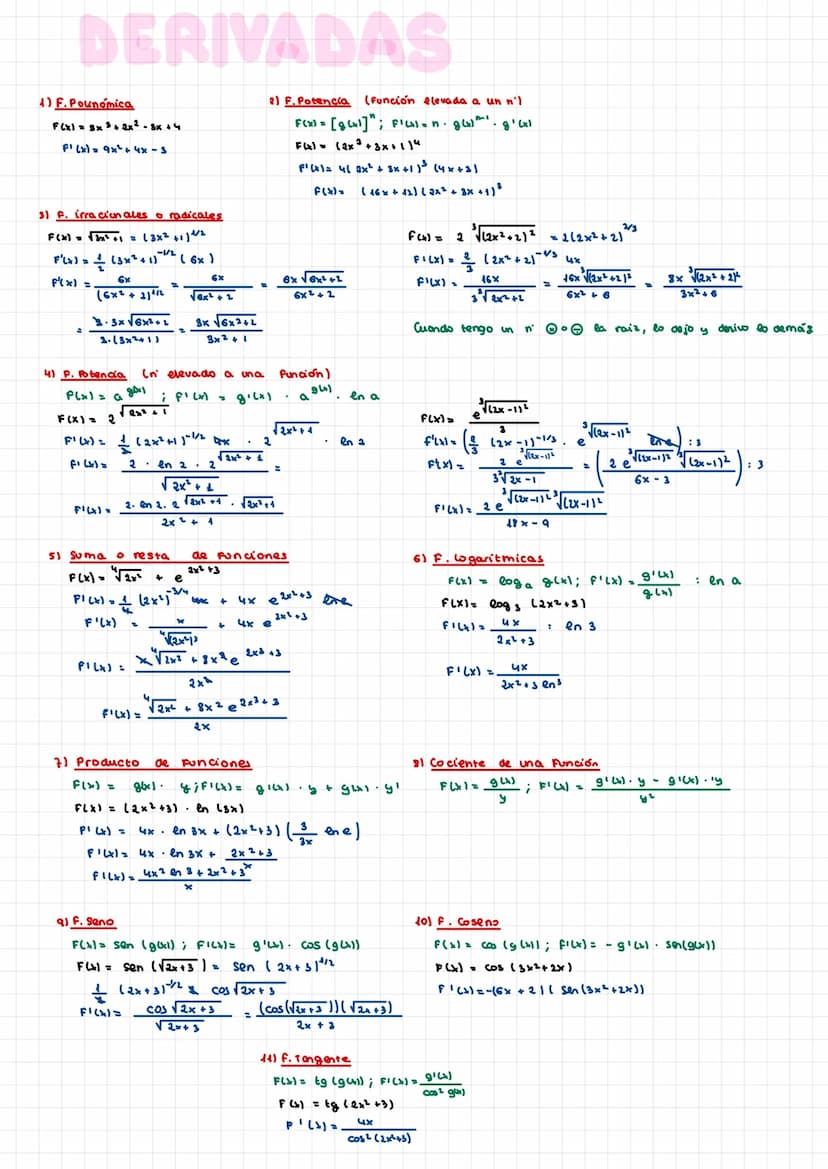 DERIVADAS
1) F. Polinómica
F(x) = 3x³ + 2x² - 3x + 4
F'(x) = 9x² + 4x - 3
2) F. Potencia (Función elevada a un nº)
F(x) = [g(x)]ⁿ ; F'(x) = n · g(x)ⁿ⁻¹ · g'(x)
F(x) = (2x² + 3x + 1)⁴
F'(x) = 4(2x² + 3x + 1)³ (4x + 3)
F(x) = (16x + 12)(2x² + 3x + 1)³
3) F. irracionales o radicales
F(x) = √(3x² + 1) = (3x² + 1)^1/2
F'(x) = 1/2 (3x² + 1)^-1/2 (6x)
F'(x) = 6x / (6x² + 2)^1/2 = 6x / √(6x² + 2) = 6x √(6x² + 2) / 6x² + 2
= 2 · 3x √(6x² + 2) / 2 · (3x² + 1) = 3x √(6x² + 2) / 3x² + 1
F(x) = 2 ∛((2x² + 2)²) = 2(2x² + 2)^2/3
F'(x) = 2/3 (2x² + 2)^-1/3 4x
F'(x) = 16x / 3 ∛(2x² + 2) = 16x ∛((2x² + 2)²) / 6x² + 6 = 8x ∛((2x² + 2)²) / 3x² + 6
Cuando tengo un nº ⊙ o ⊖ la raíz, lo dejo y derivo lo demás
4) F. Potencia (nº elevado a una función)
F(x) = a^g(x) ; F'(x) = g'(x) · a^g(x) · ln a
F(x) = 2^√(2x² + 1)
F'(x) = 1/2 (2x² + 1)^-1/2 4x · 2^√(2x² + 1) · ln 2
F'(x) = 2 · ln 2 · 2^√(2x² + 1) / √(2x² + 1) =
F'(x) = 2 · ln 2 · 2^√(2x² + 1) · √(2x² + 1) / 2x² + 1
F(x) = e^∛((2x - 1)²) / 3
F'(x) = (2/3 (2x - 1)^-1/3 · e^∛((2x - 1)²) ln e) : 3
F'(x) = 2 e^∛((2x - 1)²) / 3 ∛(2x - 1) = (2 e^∛((2x - 1)²) ∛((2x - 1)²) / 6x - 3) : 3
F'(x) = 2 e^∛((2x - 1)²) ∛((2x - 1)²) / 18x - 9
5) Suma o resta de funciones
F(x) = ∜(2x²) + e^2x² + 3
F'(x) = 1/4 (2x²)^-3/4 4x + 4x e^2x² + 3 ln e
F'(x) = x / ∜((2x²)³) + 4x e^2x² + 3
F'(x) = x ∜(2x²) + 8x³ e^2x² + 3 / 2x²
F'(x) = ∜(2x²) + 8x² e^2x² + 3 / 2x
6) F. Logarítmicas
F(x) = logₐ g(x) ; F'(x) = g'(x) / g(x) : ln a
F(x) = log₃ (2x² + 3)
F'(x) = 4x / 2x² + 3 : ln 3
F'(x) = 4x / 2x² + 3 ln3
7) Producto de funciones
F(x) = g(x) · y ; F'(x) = g'(x) · y + g(x) · y'
F(x) = (2x² + 3) · ln (3x)
F'(x) = 4x · ln 3x + (2x² + 3) (3/3x ln e)
F'(x) = 4x · ln 3x + 2x² + 3 / x
F'(x) = 4x² ln 3 + 2x² + 3 / x
8) Cociente de una Función
F(x) = g(x) / y ; F'(x) = g'(x) · y - g'(x) · 'y / y²
9) F. Seno
F(x) = sen (g(x)) ; F'(x) = g'(x) · cos (g(x))
F(x) = sen (√(2x + 3)) = sen (2x + 3)^1/2
1/2 (2x + 3)^-1/2 2 cos √(2x + 3)
F'(x) = cos √(2x + 3) / √(2x + 3) = (cos (√(2x + 3)))(√(2x + 3)) / 2x + 3
10) F. Coseno
F(x) = cos (g(x)) ; F'(x) = - g'(x) · sen(g(x))
F(x) = cos (3x² + 2x)
F'(x) = -(6x + 2)( sen (3x² + 2x))
11) F. Tangente
F(x) = tg (g(x)) ; F'(x) = g'(x) / cos² g(x)
F(x) = tg (2x² + 3)
F'(x) = 4x / cos² (2x² + 3)